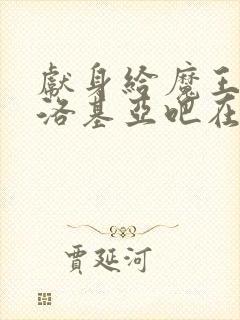 獻身給魔王
洛基亞吧在
賈延河